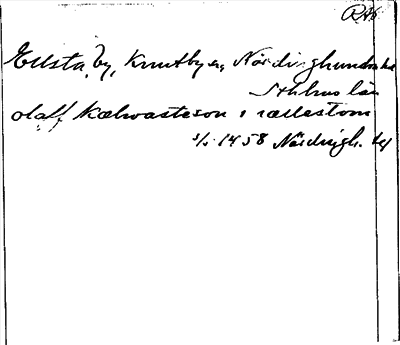 RAb
Ellsta by, Knutby sn, Närdinghundra hd
Sthlms län
olaff kætwasteson i rællestom
5/5 1458 Närdingh. hd